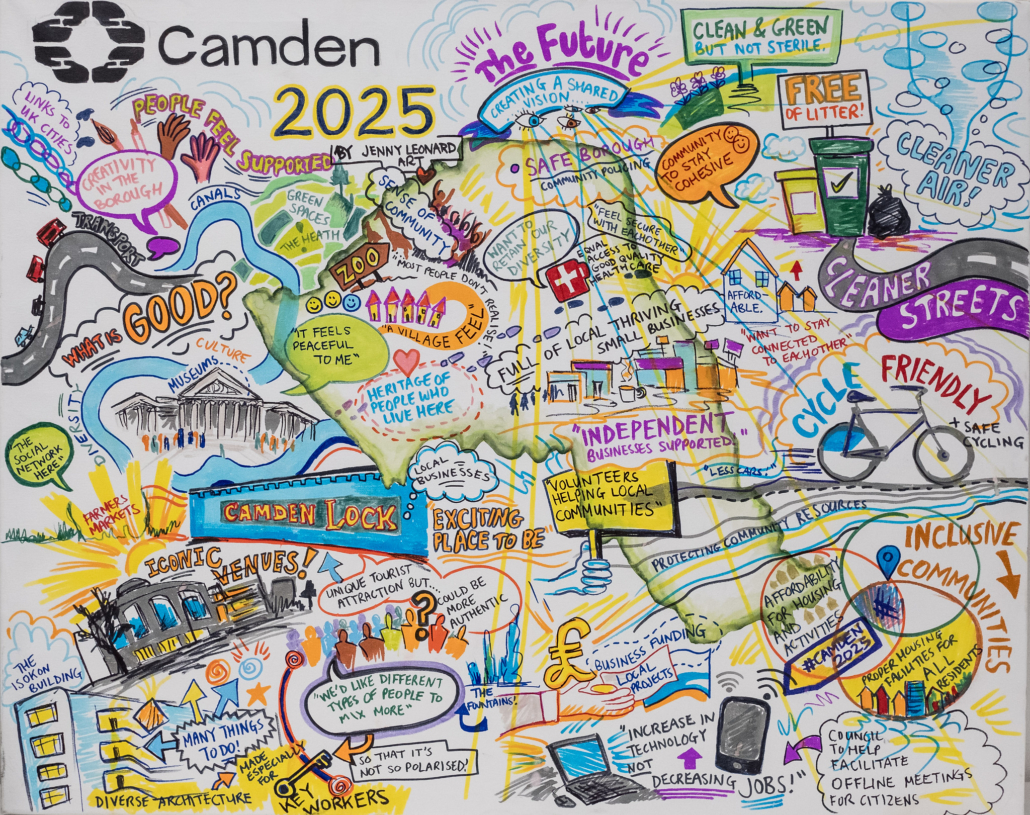 Camden
2025
BY JENNY LEONARD
ART
The Future
CREATING A SHARED
VISION...
CLEAN & GREEN
BUT NOT STERILE.
FREE
OF LITTER!
CLEANER
AIR!
LINKS TO
UK CITIES
PEOPLE FEEL
SUPPORTED
CREATIVITY
IN THE
BOROUGH
CANALS
GREEN
SPACES
THE HEATH
SENSE OF
COMMUNITY
SAFE BOROUGH
COMMUNITY POLICING
COMMUNITY
TO STAY
COHESIVE
TRANSPORT
ZOO
WANT TO
RETAIN OUR
DIVERSITY
"FEEL SECURE
WITH EACHOTHER"
EQUAL
ACCESS TO
GOOD QUALITY
HEALTHCARE
AFFORD-
ABLE.
"WANT TO STAY
CONNECTED
TO EACHOTHER"
CLEANER
STREETS
WHAT IS
GOOD?
"MOST PEOPLE DON'T REALISE
"A VILLAGE FEEL"
"IT FEELS
PEACEFUL
TO ME"
FULL OF LOCAL THRIVING
SMALL BUSINESSES
CULTURE
MUSEUMS.
DIVERSITY
HERITAGE OF
PEOPLE WHO
LIVE HERE
CYCLE FRIENDLY
+ SAFE
CYCLING
"THE
SOCIAL
NETWORK
HERE"
"INDEPENDENT
BUSINESSES SUPPORTED."
"LESS CARS!"
FARMERS
MARKETS
CAMDEN LOCK
LOCAL
BUSINESSES
EXCITING
PLACE TO BE"
"VOLUNTEERS
HELPING LOCAL
COMMUNITIES"
PROTECTING COMMUNITY RESOURCES
INCLUSIVE
COMMUNITIES
AFFORDABILITY
FOR HOUSING
AND
ACTIVITIES
#CAMDEN
2025
PROPER HOUSING
FACILITIES FOR
ALL
RESIDENTS
ICONIC VENUES!
UNIQUE TOURIST
ATTRACTION BUT..
COULD BE
MORE
AUTHENTIC
?
THE
ISOKON
BUILDING
MANY THINGS
TO DO!
DIVERSE ARCHITECTURE
"WE'D LIKE DIFFERENT
TYPES OF PEOPLE TO
MIX MORE"
SO THAT IT'S
NOT SO POLARISED!
MADE
ESPECIALLY
FOR
KEY WORKERS
THE
FOUNTAINS!
£
BUSINESS FUNDING
LOCAL
PROJECTS
"INCREASE IN
TECHNOLOGY
NOT
DECREASING JOBS!"
COUNCIL
TO HELP
FACILITATE
OFFLINE MEETINGS
FOR CITIZENS